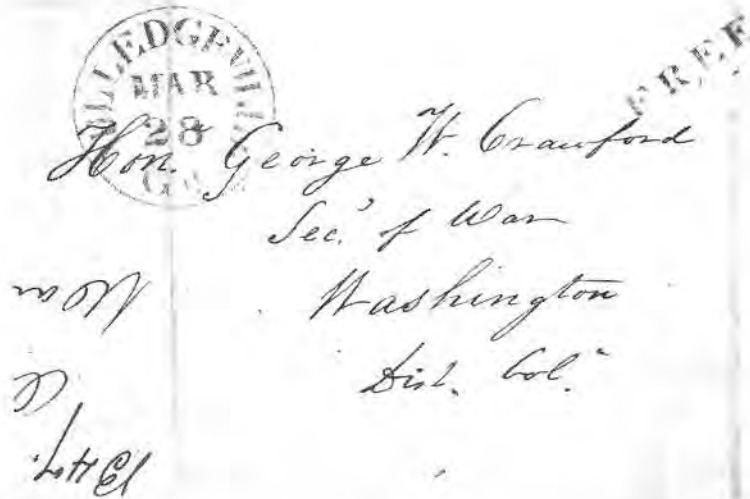 MILLEDGEVILLE
MAR
28
Ga.
FREE
Hon. George W. Crawford
Sec.' of War
Washington
Dist. Col.
War